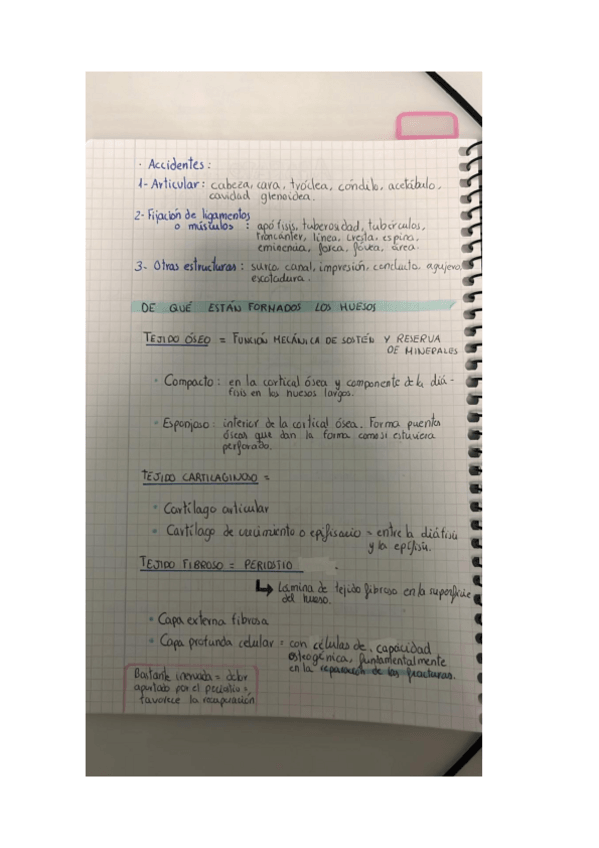 · Accidentes:
1- Articular: cabeza, cara, tróclea, cóndilo, acetábulo,
cavidad glenoidea.
2- Fijación de ligamentos
o músculos : apófisis, tuberosidad, tubérculos,
troncánter, línea, cresta, espina,
eminencia, fosca, fóvea, área.
3- Otras estructuras: surco, canal, impresión, conducto, agujero,
escotadura.
DE QUÉ ESTÁN FORMADOS LOS HUESOS
TEJIDO ÓSEO = FUNCIÓN MECÁNICA DE SOSTÉN Y RESERVA
DE MINERALES
• Compacto: en la cortical ósea y componente de la diá-
fisis en los huesos largos.
• Esponjoso: interior de la cortical ósea. Forma puentes
óseos que dan la forma como si estuviera
perforado.
TEJIDO CARTILAGINOSO =
• Cartílago articular
• Cartílago de crecimiento o epifisario = entre la diáfisis
y la epífisis.
TEJIDO FIBROSO = PERIOSTIO
↳ Lámina de tejido fibroso en la superficie
del hueso.
• Capa externa fibrosa
• Capa profunda celular = con células de capacidad
osteogénica, fundamentalmente
en la reparación de las fracturas.
Bastante inervada = dolor
aportado por el periostio =
favorece la recuperación